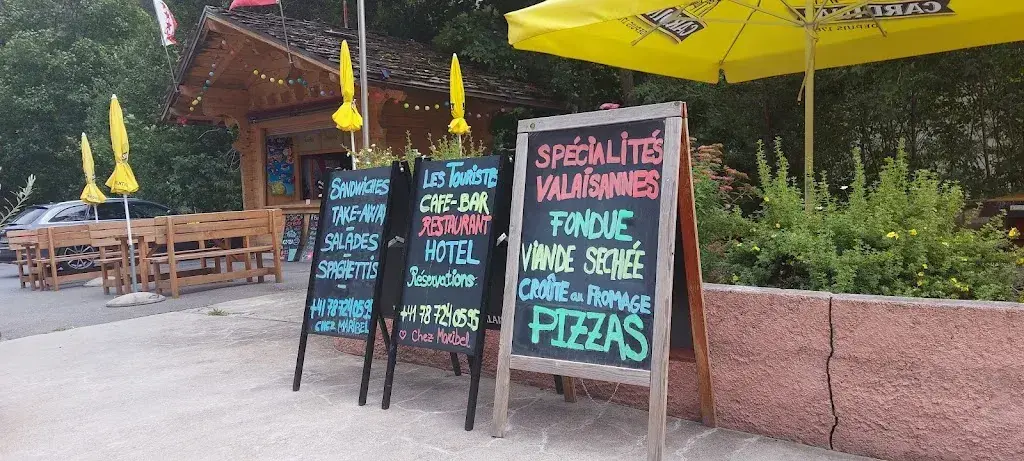 CARDINAL
DEPUIS 1788
SANDWICHES
TAKE-AWAY
-
SALADES
-
SPAGHETTIS
+41 78 724 05 95
CHEZ MARIBEL
LES TOURISTES
CAFE-BAR
RESTAURANT
HOTEL
Réservations:
+41 78 724 05 95
♡ Chez Maribel
SPÉCIALITÉS
VALAISANNES
FONDUE
VIANDE SECHÉE
CROÛTE au FROMAGE
PIZZAS